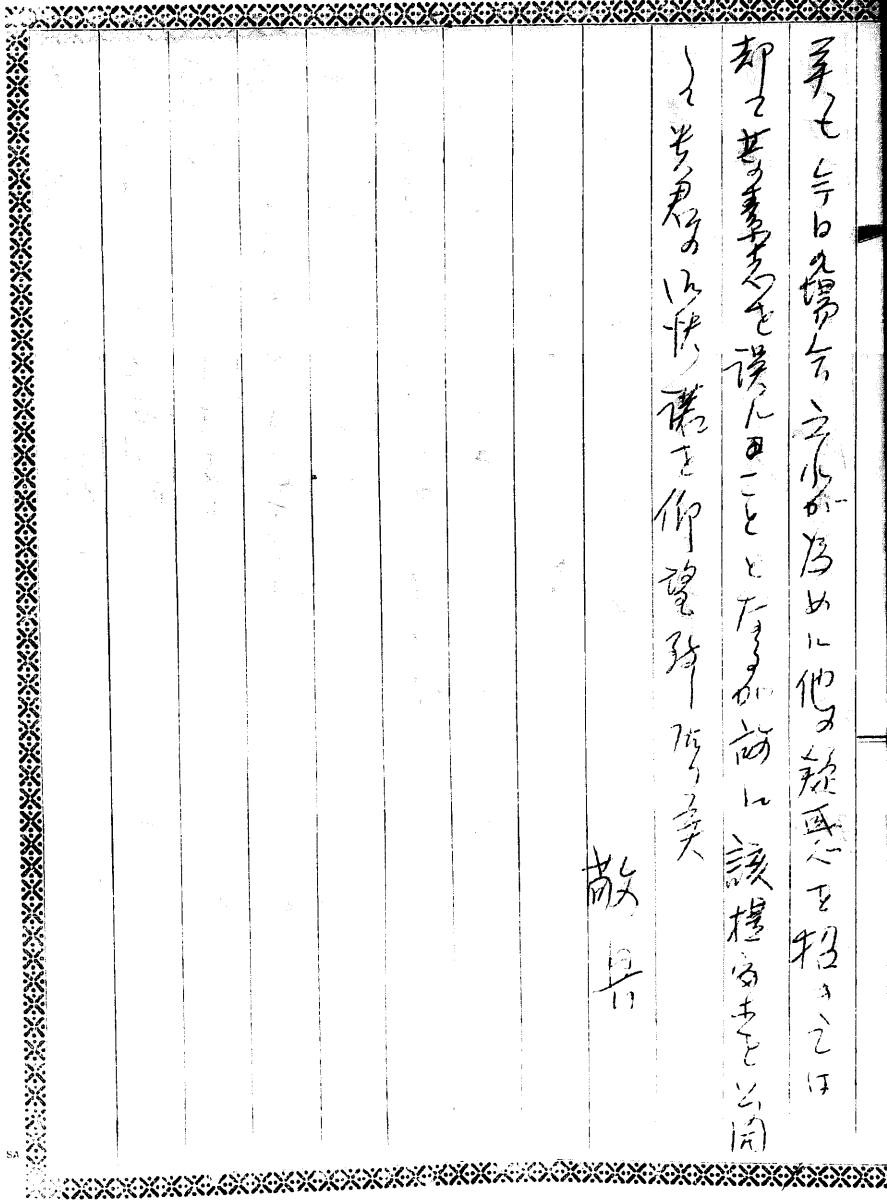 美も今日の場合之れが為めに他の疑惑を招きては
却て其の素志を誤ることとなるが故に該提案を公開
して貴君の御快諾を仰望致し居り候
敬具
SA